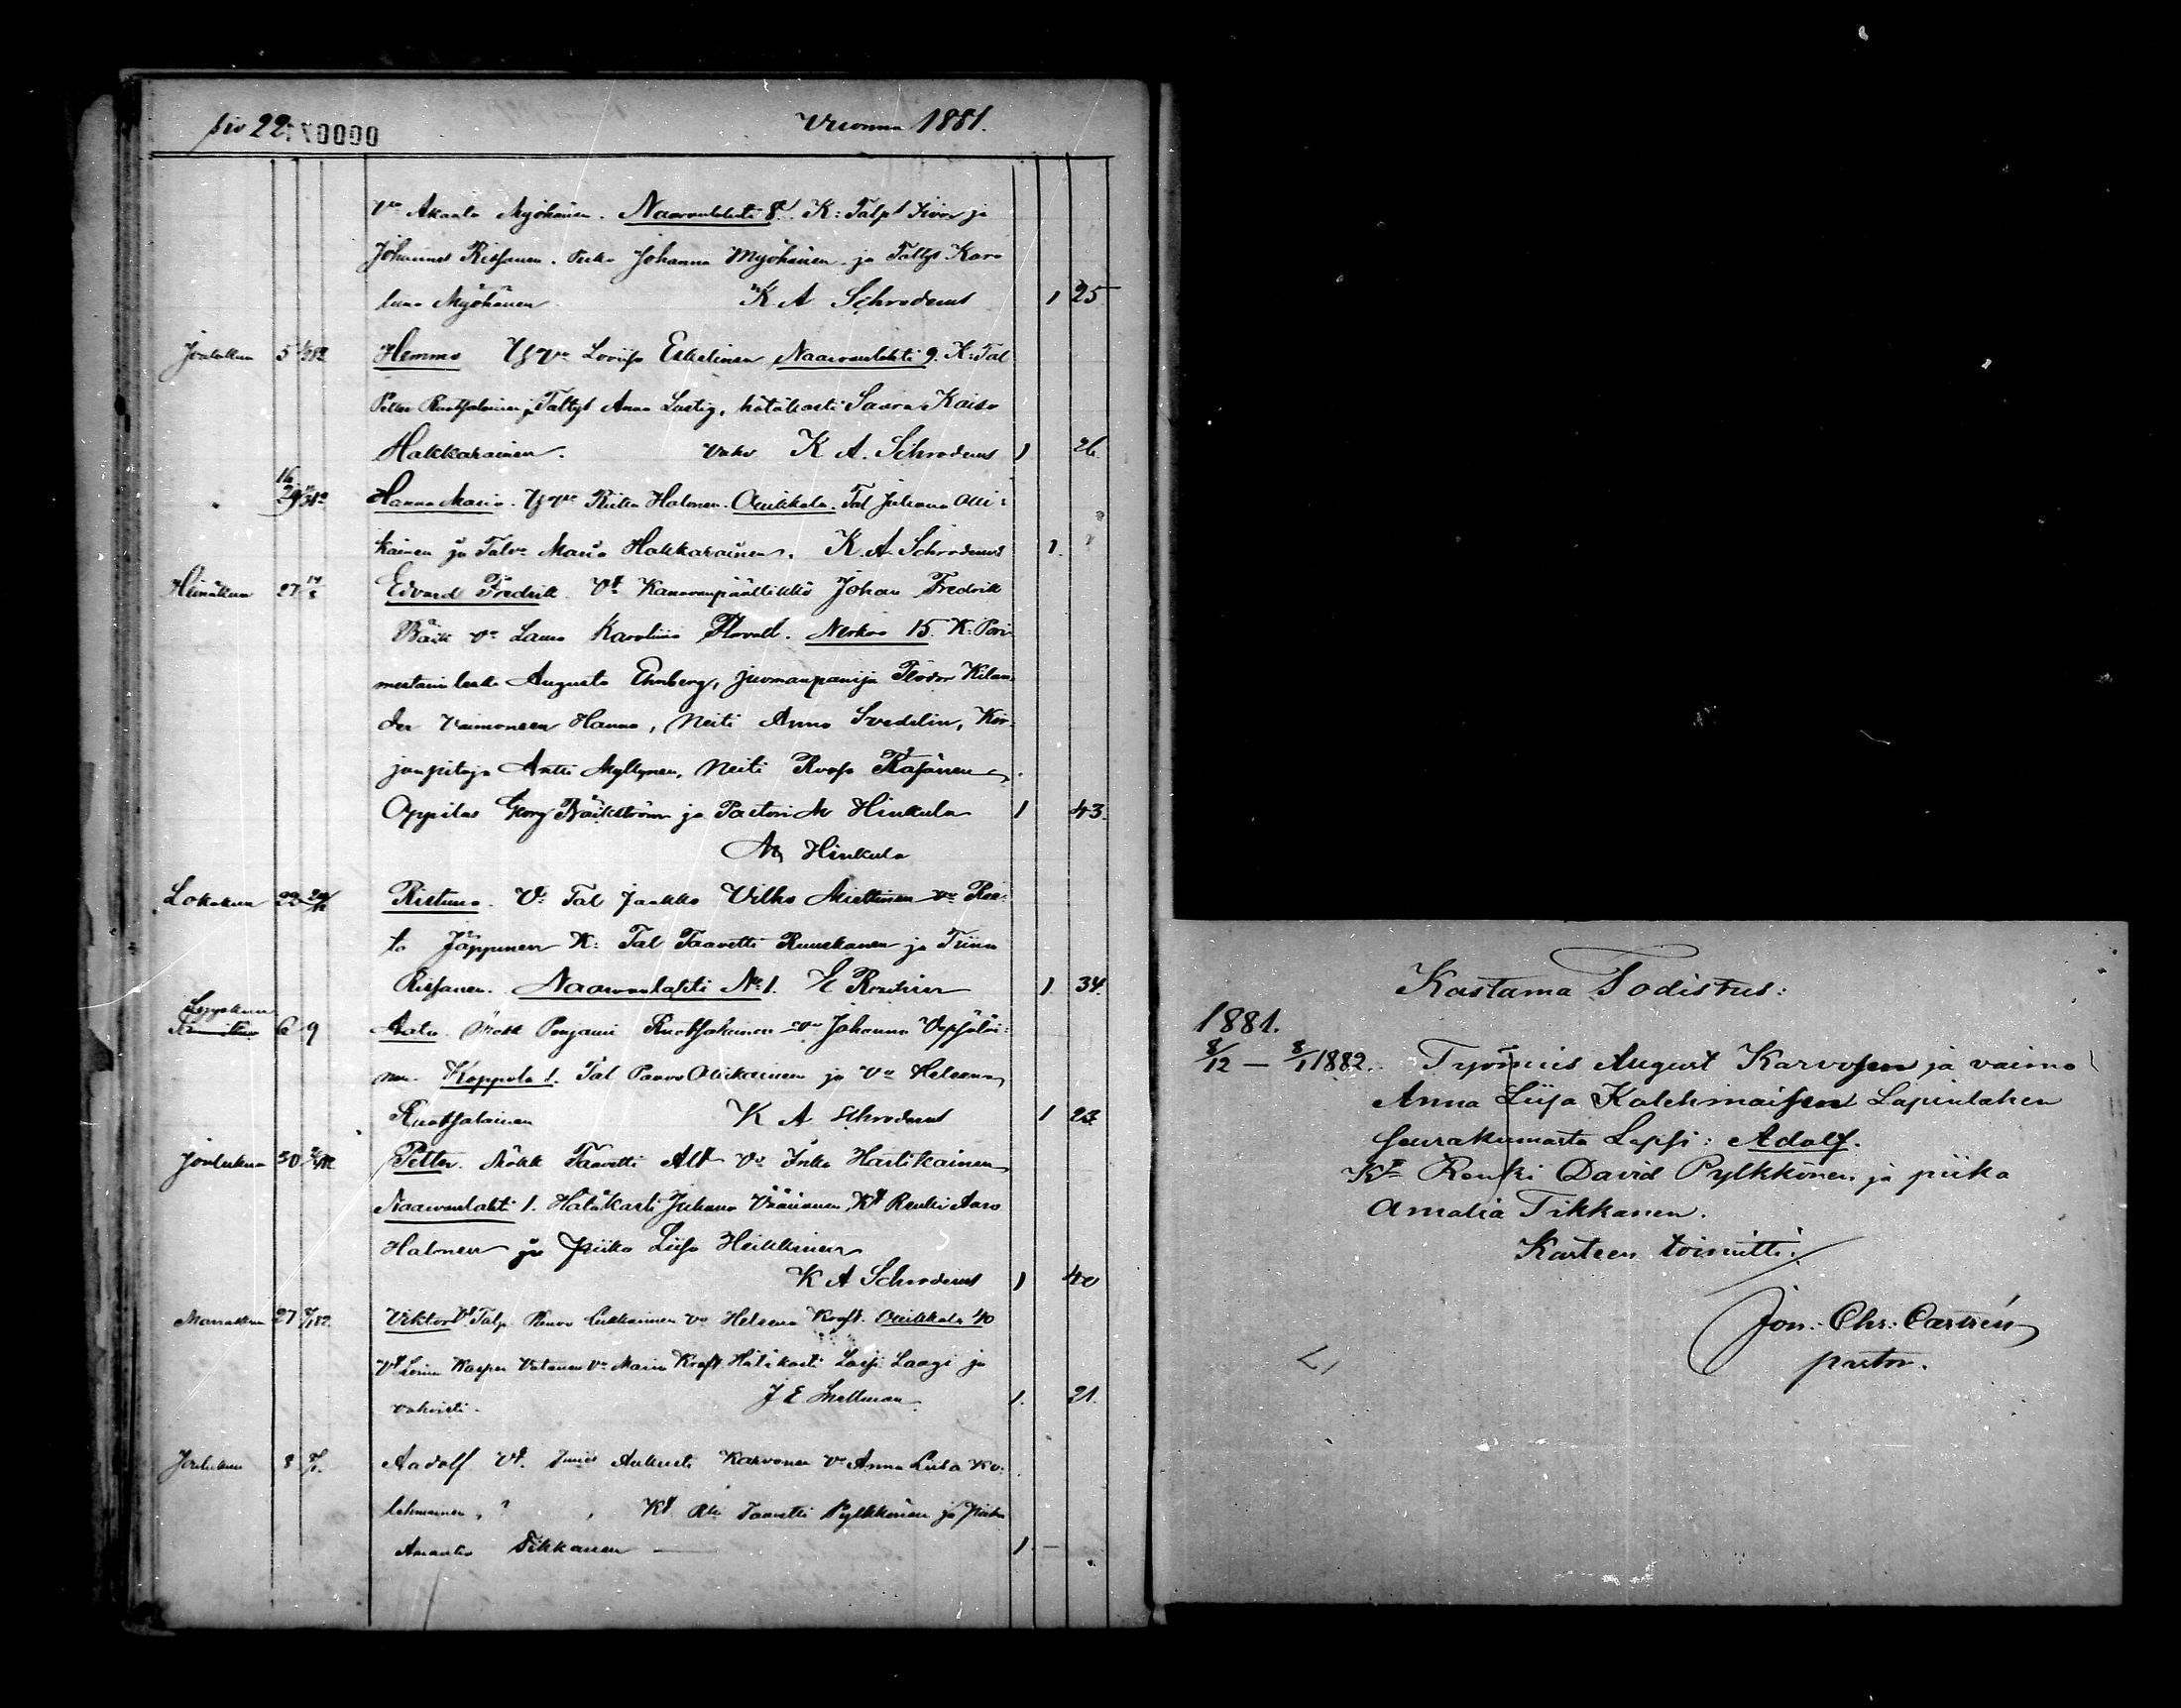 siv 22. Vuonna 1881.
Vmo Akaata Myöhänen. Naarvanlahti 8. K: Talp
Johannes Rissanen. Piika Johanna Myöhänen ja Taltyt Karo
liina Myöhänen K. A Schroderus 1 25
Joulukuu 5 Hemmo Lovisa Eskelinen Naarvanlahti 9. K: Tal
Petter Ruotsalainen ja Taltyt Anna Lastig, hätäkasti Saara Kaisa
Hakkarainen. K A. Schroderus 1 26.
" 29 Hanna Maria. Riikka Halonen. Ollikkala. Tal Juhana Olli=
kainen ja Talvo Maria Hakkarainen. K. A. Schroderus 1.
Heinäkuu 27 Edvard Fredrik Vt Kanavanpäällikkö Johan Fredrik
Bäck vo Laura Karoliina Florell. Nerkoo 15. K:
mestarin leski Augusta Ehnberg, juomanpanija Teodor Kilan
der vaimoneen Hanna, Neiti Anna Svedelin, Kir
janpitäjä Antti Myllynen, Neiti Roosa
Oppilas Georg Bäckström ja Pastori M Hinkula 1 43.
M Hinkula
Lokakuu 22 Ristiina. Vt Tal Jaakko Vilho Miettinen vo Ree
ta Jäppinen K: Tal Taavetti Ruuskanen ja Triina
Rissanen. Naarvanlahti No 1. E 1. 34.
Syyskuu
6 9 Aatu. Mökk Penjami Ruotsalainen vo Johanna Vepsäläi=
nen. Koppola 1. Tal Paavo Ollikainen ja Vo Helena
Ruotsalainen K A Schroderus 1 23
Joulukuu 30 Petter. Mökk Taavetti Alt vo Inka Hartikainen
Naarvanlahti 1. Hätäkasti Juhana Väänänen, Kt Renki Aaro
Halonen ja piika Liisa Heikkinen
K A Schroderus 1 40
Marraskuu 27 Viktor Vt Talp Paavo Leskinen vo Helena Kraft. Ollikkala 10
Kasper Vatanen vo Maria Kraft. Hätäkasti ja
vahvisti. J E Snellman. 1. 21.
Joulukuu 8 Aadolf Vt. Aukusti Karvonen vo Anna Liisa Ko=
lehmainen, ? Kt Taavetti Pylkkönen ja Piika
Amanta Tikkanen — 1 —
Kastama Todistus:
1881.
8/12 — 8/1 1882. Työmies August Karvosen ja vaimo
Anna Liisa Kolehmaisen Lapinlahen
seurakunnasta Lapsi: Adolf.
Kt Renki David Pylkkönen ja piika
Amalia Tikkanen.
Kasteen toimitti:
Jon. Chr. Carrén
pastor.